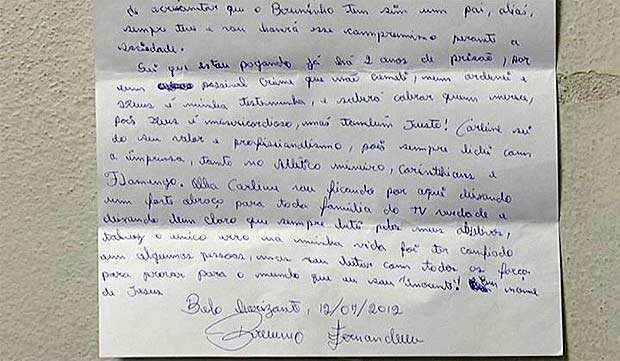 de acrescentar que o Bruninho tem sim um pai, aliás,
sempre teve e vou honrá esse compromisso perante a
sociedade.
Sei que estou pagando já há 2 anos de prisão, por
um possivel crime que não cometi, nem ordenei e
Deus é minha testemunha, e saberá cobrar quem merece,
pois Deus é misericordioso, mas também Justo! Carlene sei
do seu valor e profissionalismo, pois sempre lidei com
a imprensa, tanto no Atletico mineiro, Corinthians e
Flamengo. Olha Carlene vou ficando por aqui deixando
um forte abraço para toda família da TV verdade e
deixando bem claro que sempre lutei pelos meus objetivos,
talvez o unico erro na minha vida foi ter confiado
em algumas pessoas, mas vou lutar com todas as forças
para provar para o mundo que eu sou "inocente"! Em nome
de Jesus
Belo Horizonte, 12/07/2012
Bruno Fernandes